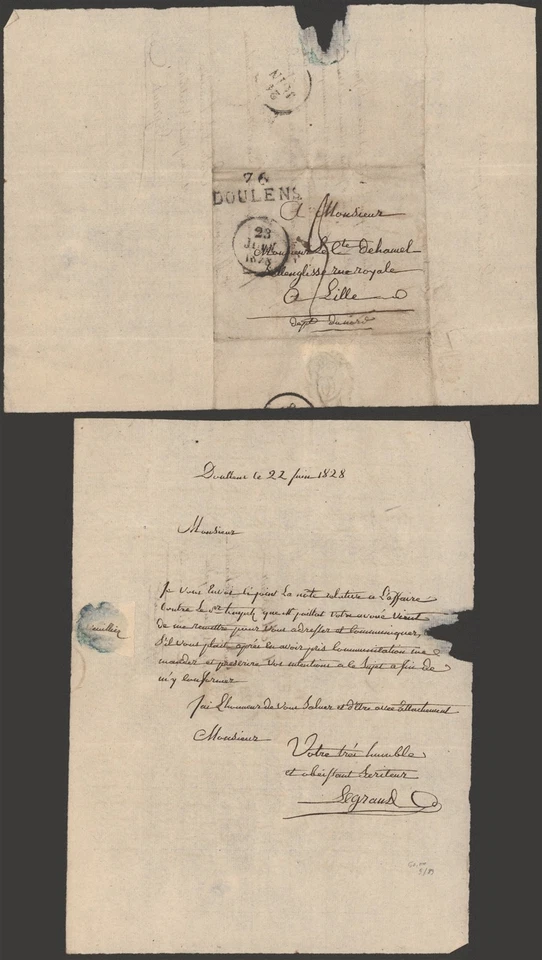 JUIN
76
DOULENS
23
JUIN
1828
A Monsieur
Monsieur Le Cte Dehamel
rue royale
A Lille
dept du nord
Doullens le 22 juin 1828
Monsieur
Je vous envoi cijoint La note relative a L'affaire
Contre Le Sr que Mr votre avoué vient
de me remettre pour vous adresser et communiquer,
S'il vous plait, après en avoir pris communication me
mander et prescrire vos intentions a ce Sujet a fin de
m'y conformer
J'ai L'honneur de vous Saluer et d'être avec attachement
Monsieur
Votre très humble
et obeissant Serviteur
Legrand